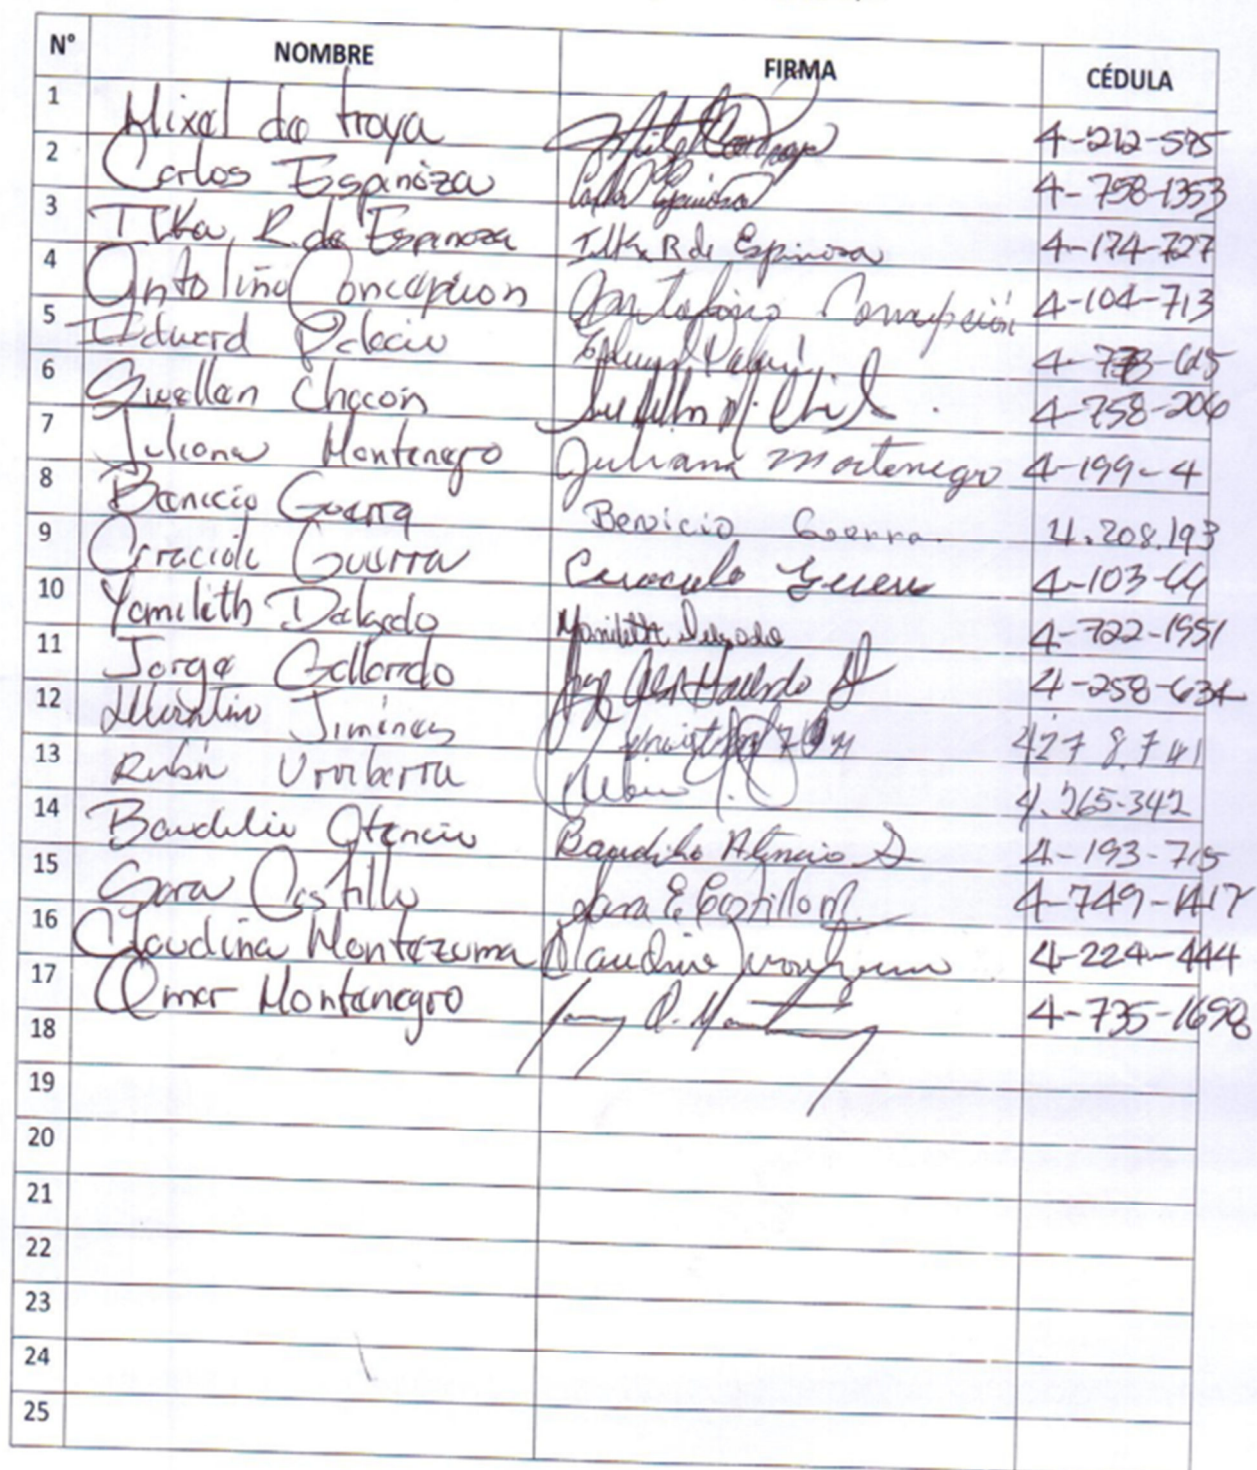 N° NOMBRE FIRMA CÉDULA
1 Mixel de troya 4-212-575
2 Carlos Espinoza Carlos Espinosa 4-758-1353
3 Ilka R. de Espinoza Ilka R de Espinosa 4-174-727
4 Antolino Concepcion Antolino Concepción 4-104-713
5 Eduard Palacio 4-778-615
6 Suellen Chacón 4-758-206
7 Juliana Montenegro Juliana Montenegro 4-199-4
8 Benicio Guerra Benicio Guerra 4.208.193
9 Caracioli Guerra 4-103-44
10 Yamileth Delgado Yamileth Delgado 4-722-1551
11 Jorge Gallardo 4-258-634
12 Jiménez 427 8.741
13 Rubin Urriberra 4.265-342
14 Baudilio Atencio Baudilio Atencio 4-193-715
15 Sara Castillo Sara E Castillo M. 4-749-1417
16 Claudina Montezuma 4-224-444
17 Omar Montenegro 4-735-1698
18
19
20
21
22
23
24
25